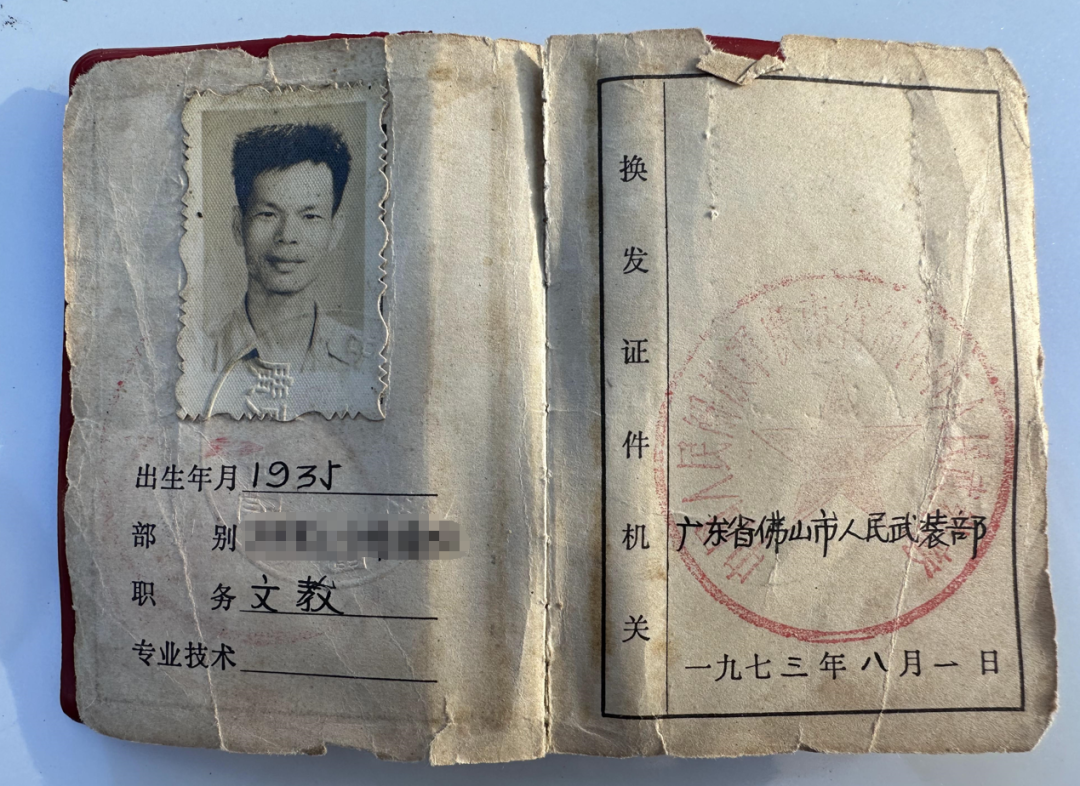 出生年月 1935
部别
职务 文教
专业技术
换发证件机关
广东省佛山市人民武装部
一九七三年八月一日